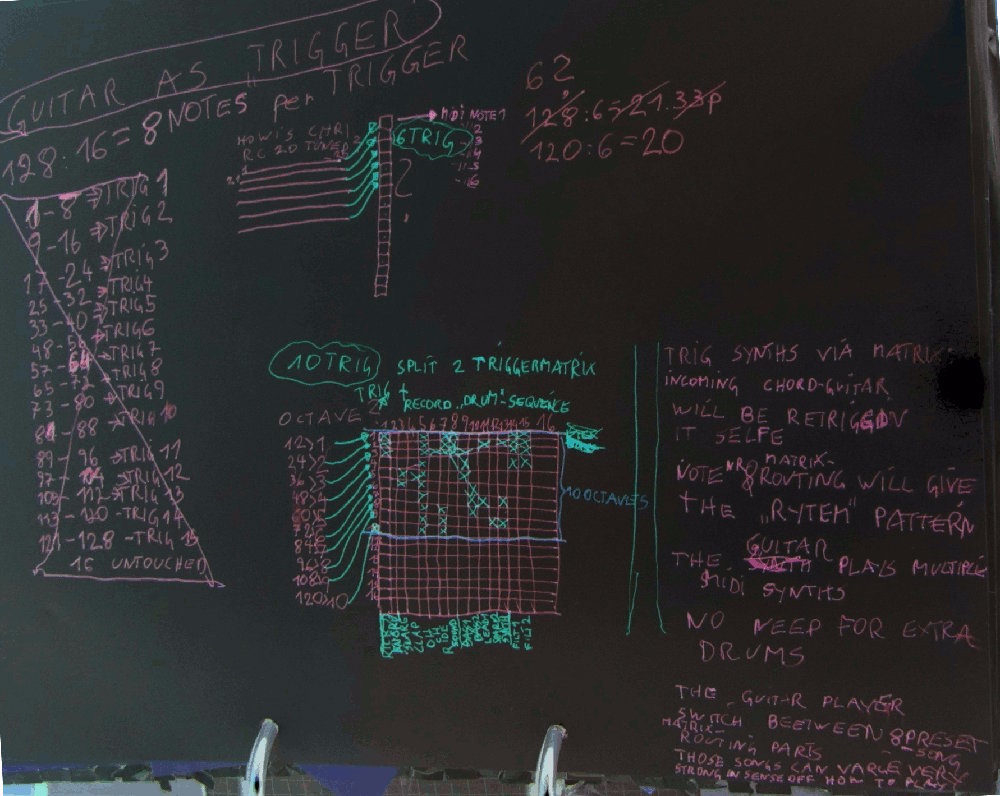 GUITAR AS „TRIGGER
128:16=8 NOTES per TRIGGER
1-8 ⇒ TRIG 1
9-16 ⇒ TRIG 2
17-24 ⇒ TRIG 3
25-32 ⇒ TRIG 4
33-40 ⇒ TRIG 5
48-56 ⇒ TRIG 6
57-64 TRIG 7
65-72 TRIG 8
73-80 TRIG 9
88 TRIG 10
89-96 → TRIG 11
TRIG 12
112 → TRIG 13
113-120 - TRIG 14
121-128 - TRIG 15
16 UNTOUCHED
6 TRIG
MIDI NOTE 1
62
128:6=21.33p
120:6=20
10 TRIG SPLIT 2 TRIGGERMATRIX
TRIG + RECORD „DRUM" SEQUENCE
OCTAVE
1 2 3 4 5 6 7 8 9 10 11 12 13 14 15 16
12>1
24>2
36>3
48>4
60>5
72>6
84>7
96>8
108>9
120>10
10 OCTAVES
SNARE
CLAP
OH
CH
RIDE
FILT 1
FILT 2
TRIG SYNTHS VIA MATRIX-
INCOMING CHORD-GUITAR
WILL BE RETRIGEDN
IT SELFE
NOTE NR & MATRIX-ROUTING WILL GIVE
THE „RYTEM" PATTERN
THE GUITAR PLAYS MULTIPLE
MIDI SYNTHS
NO NEED FOR EXTRA
DRUMS
THE GUITAR PLAYER
SWITCH BEETWEEN 8 PRESET
MATRIX-ROUTING PARTS - SONG
THOSE SONGS CAN VARIE VERY
STRONG IN SENSE OFF HOW TO PLAY